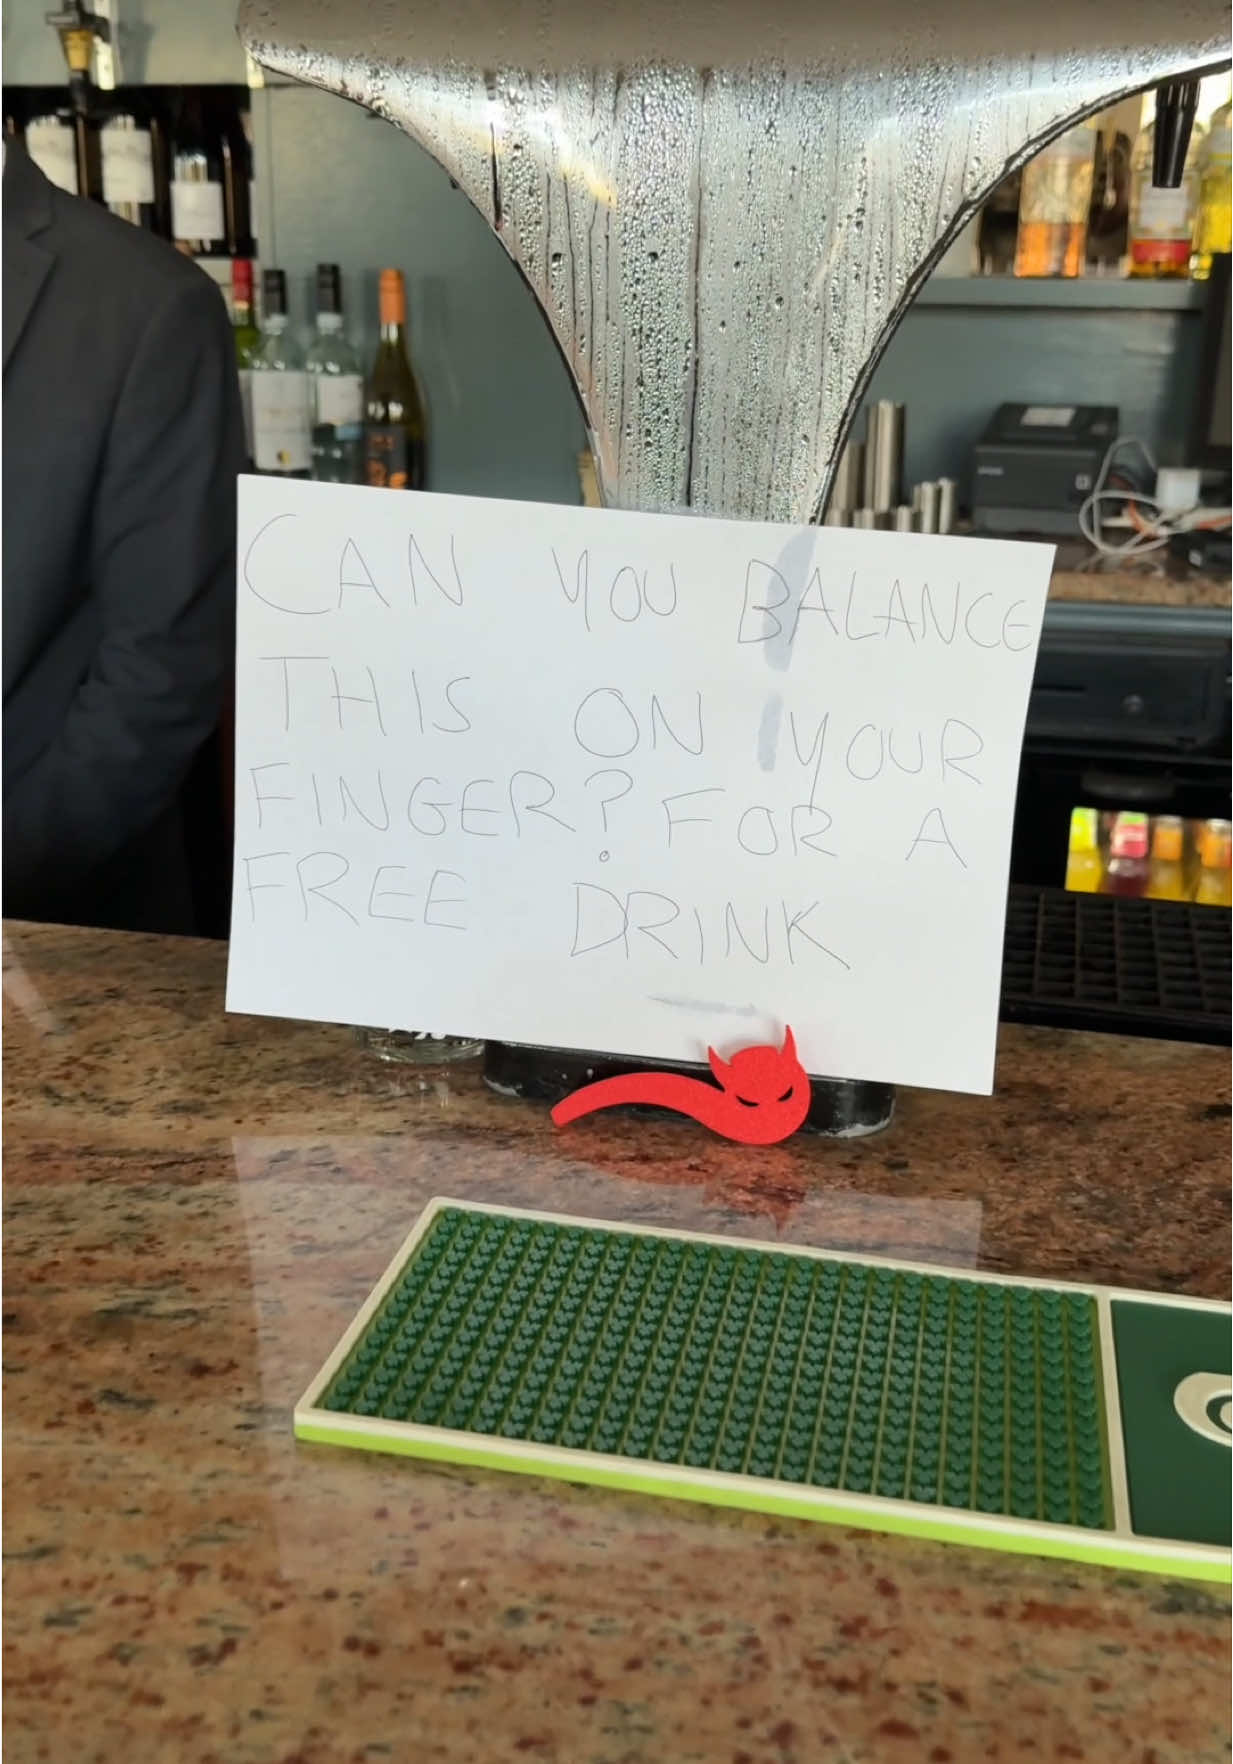 CAN YOU BALANCE
THIS ON YOUR
FINGER? FOR A
FREE DRINK